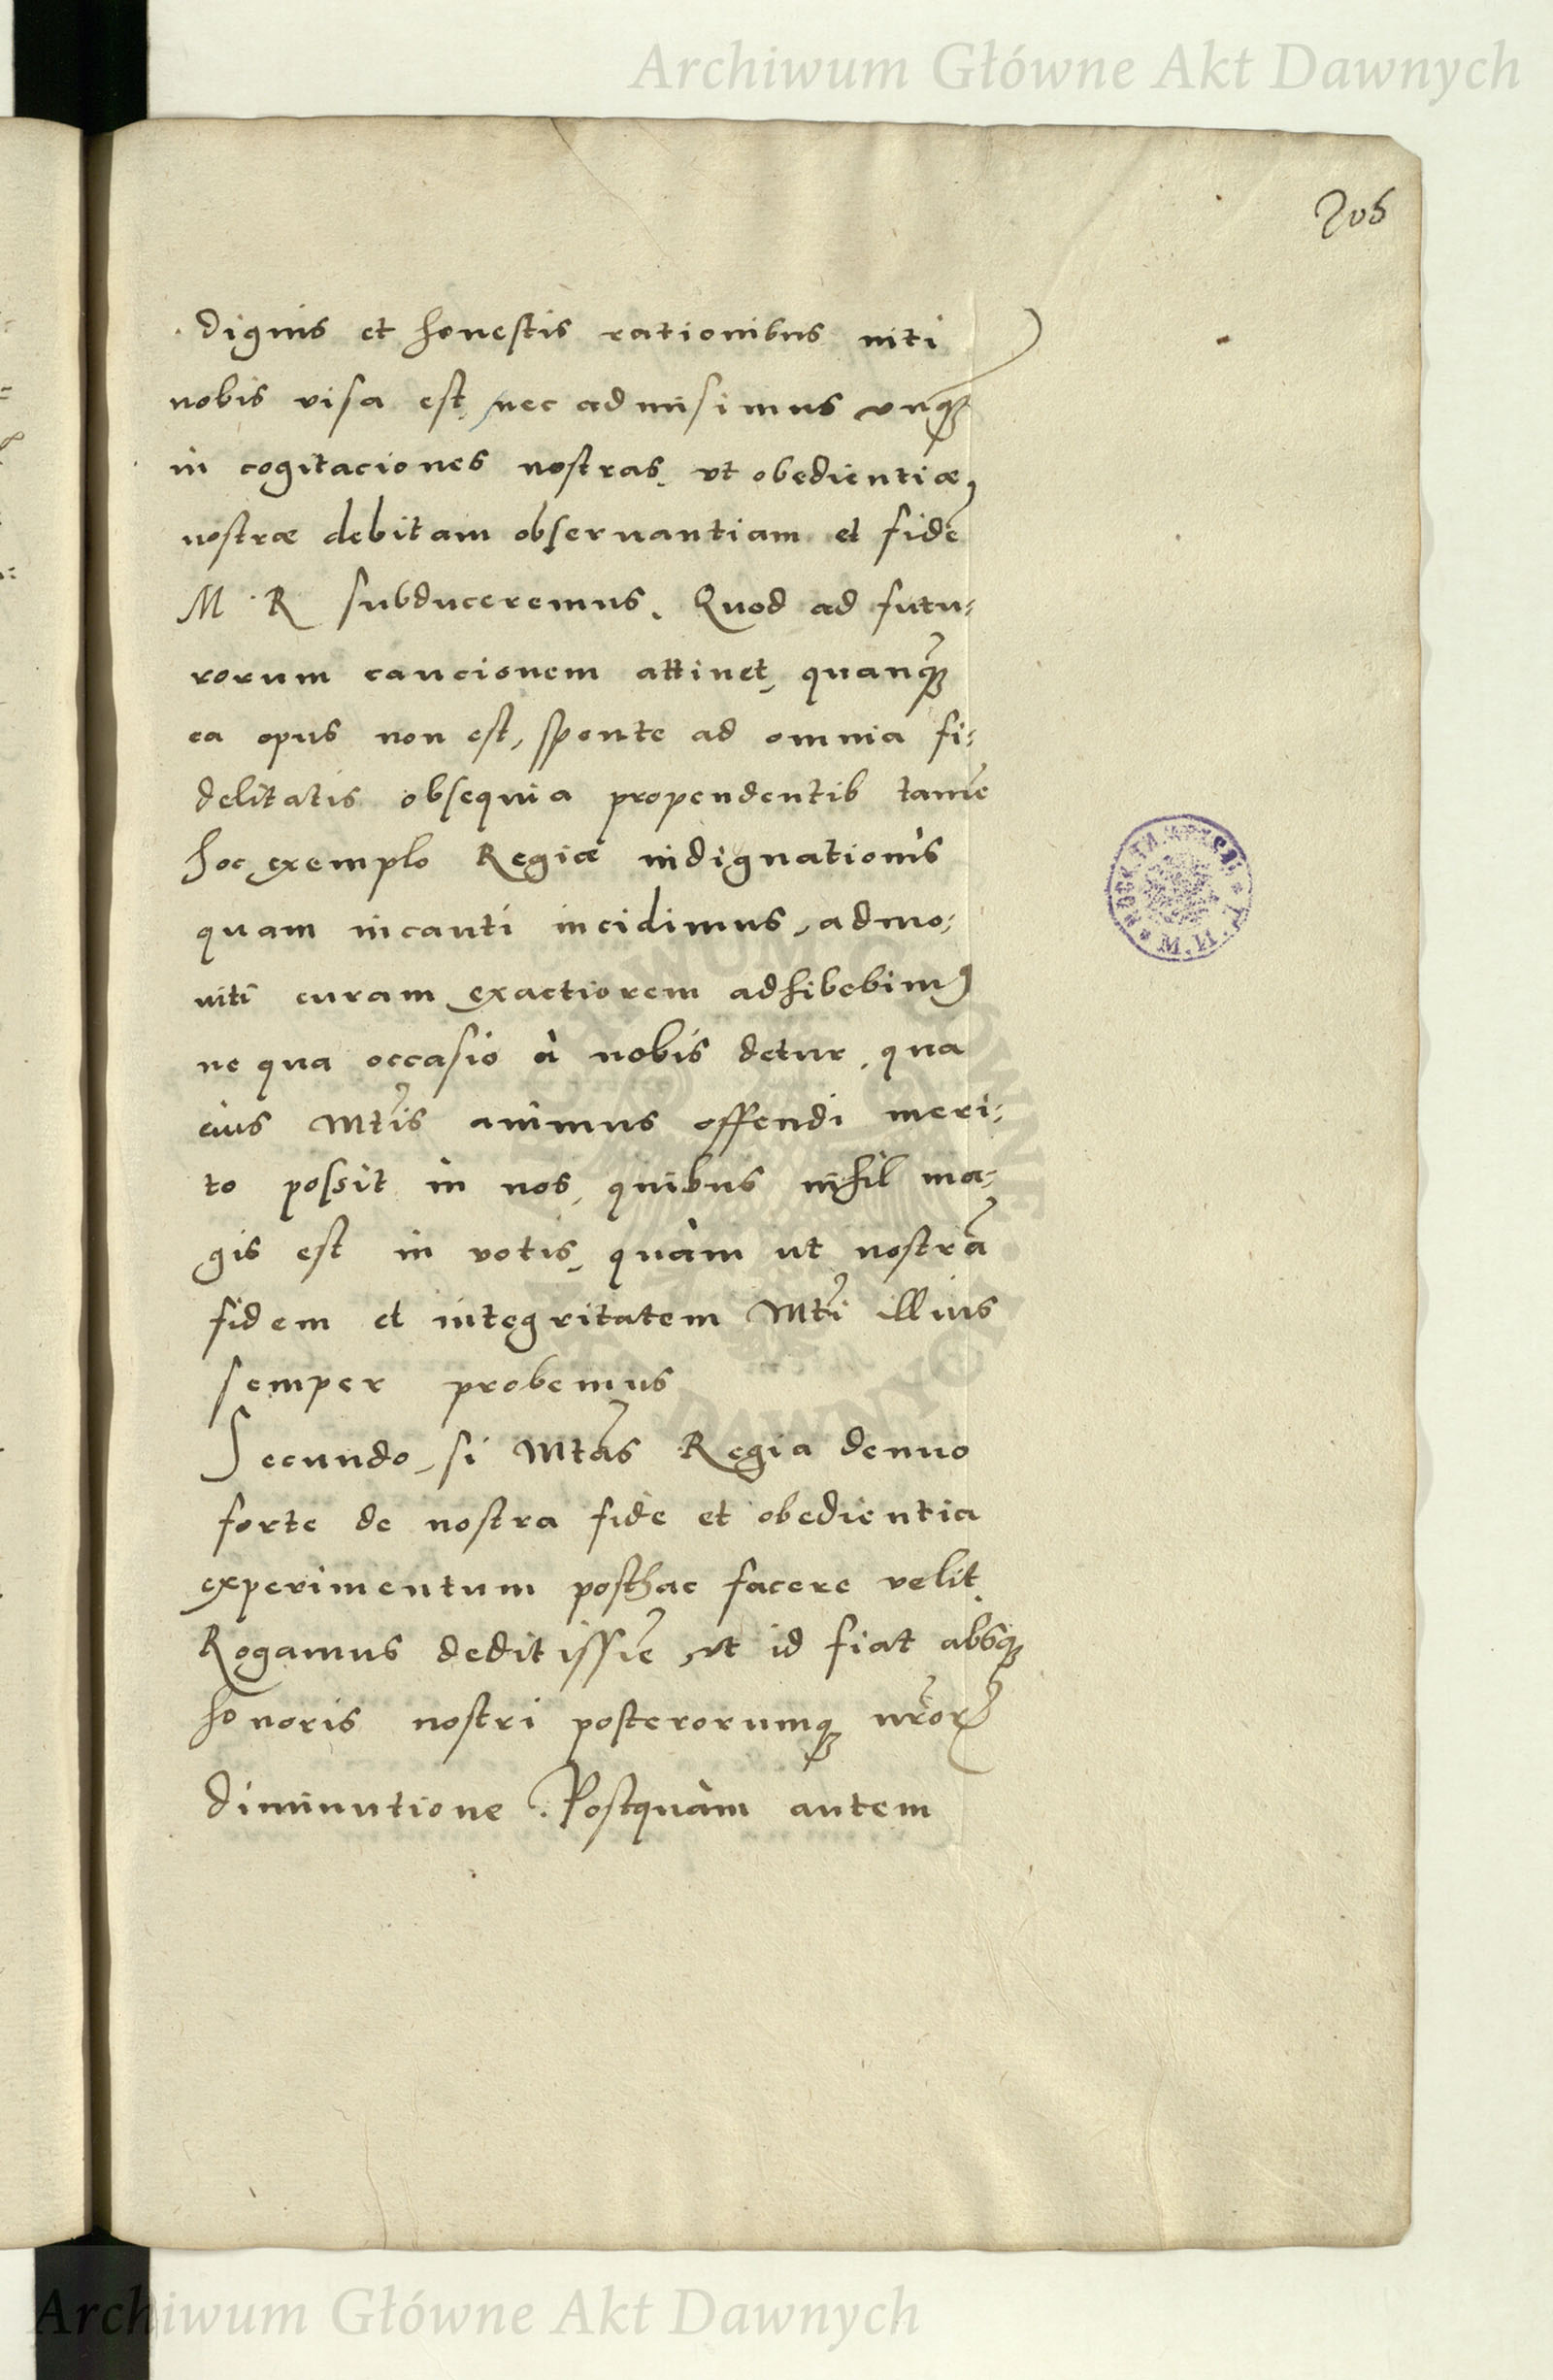 Archiwum Główne Akt Dawnych
205
dignis et honestis rationibus niti
nobis visa est, nec admisimus unq̃
in cogitaciones nostras, ut obedientiæ
nostræ debitam observantiam et fidē
M. R subduceremus. Quod ad futu:
rorum caucionem attinet, quanq̃
ea opus non est, sponte ad omnia fi:
delitatis obsequia propendentib tamē
hoc exemplo Regiæ indignationis
quam incauti incidimus, admo:
niti curam exactiorem adhibebimꝰ
ne qua occasio à nobis detur, qua
eius Mtis animus offendi meri:
to possit in nos, quibus nihil ma:
gis est in votis, quàm ut nostrā
fidem et integritatem Mti illius
semper probemus
Secundo, si Mtas Regia denuo
forte de nostra fide et obedientia
experimentum posthac facere velit.
Rogamus deditissīe, ut id fiat absqꝫ
honoris nostri posterorumqꝫ nr̃orꝝ
diminutione. Postquàm autem
ARCHIWUM GŁÓWNE AKT DAWNYCH
Archiwum Główne Akt Dawnych